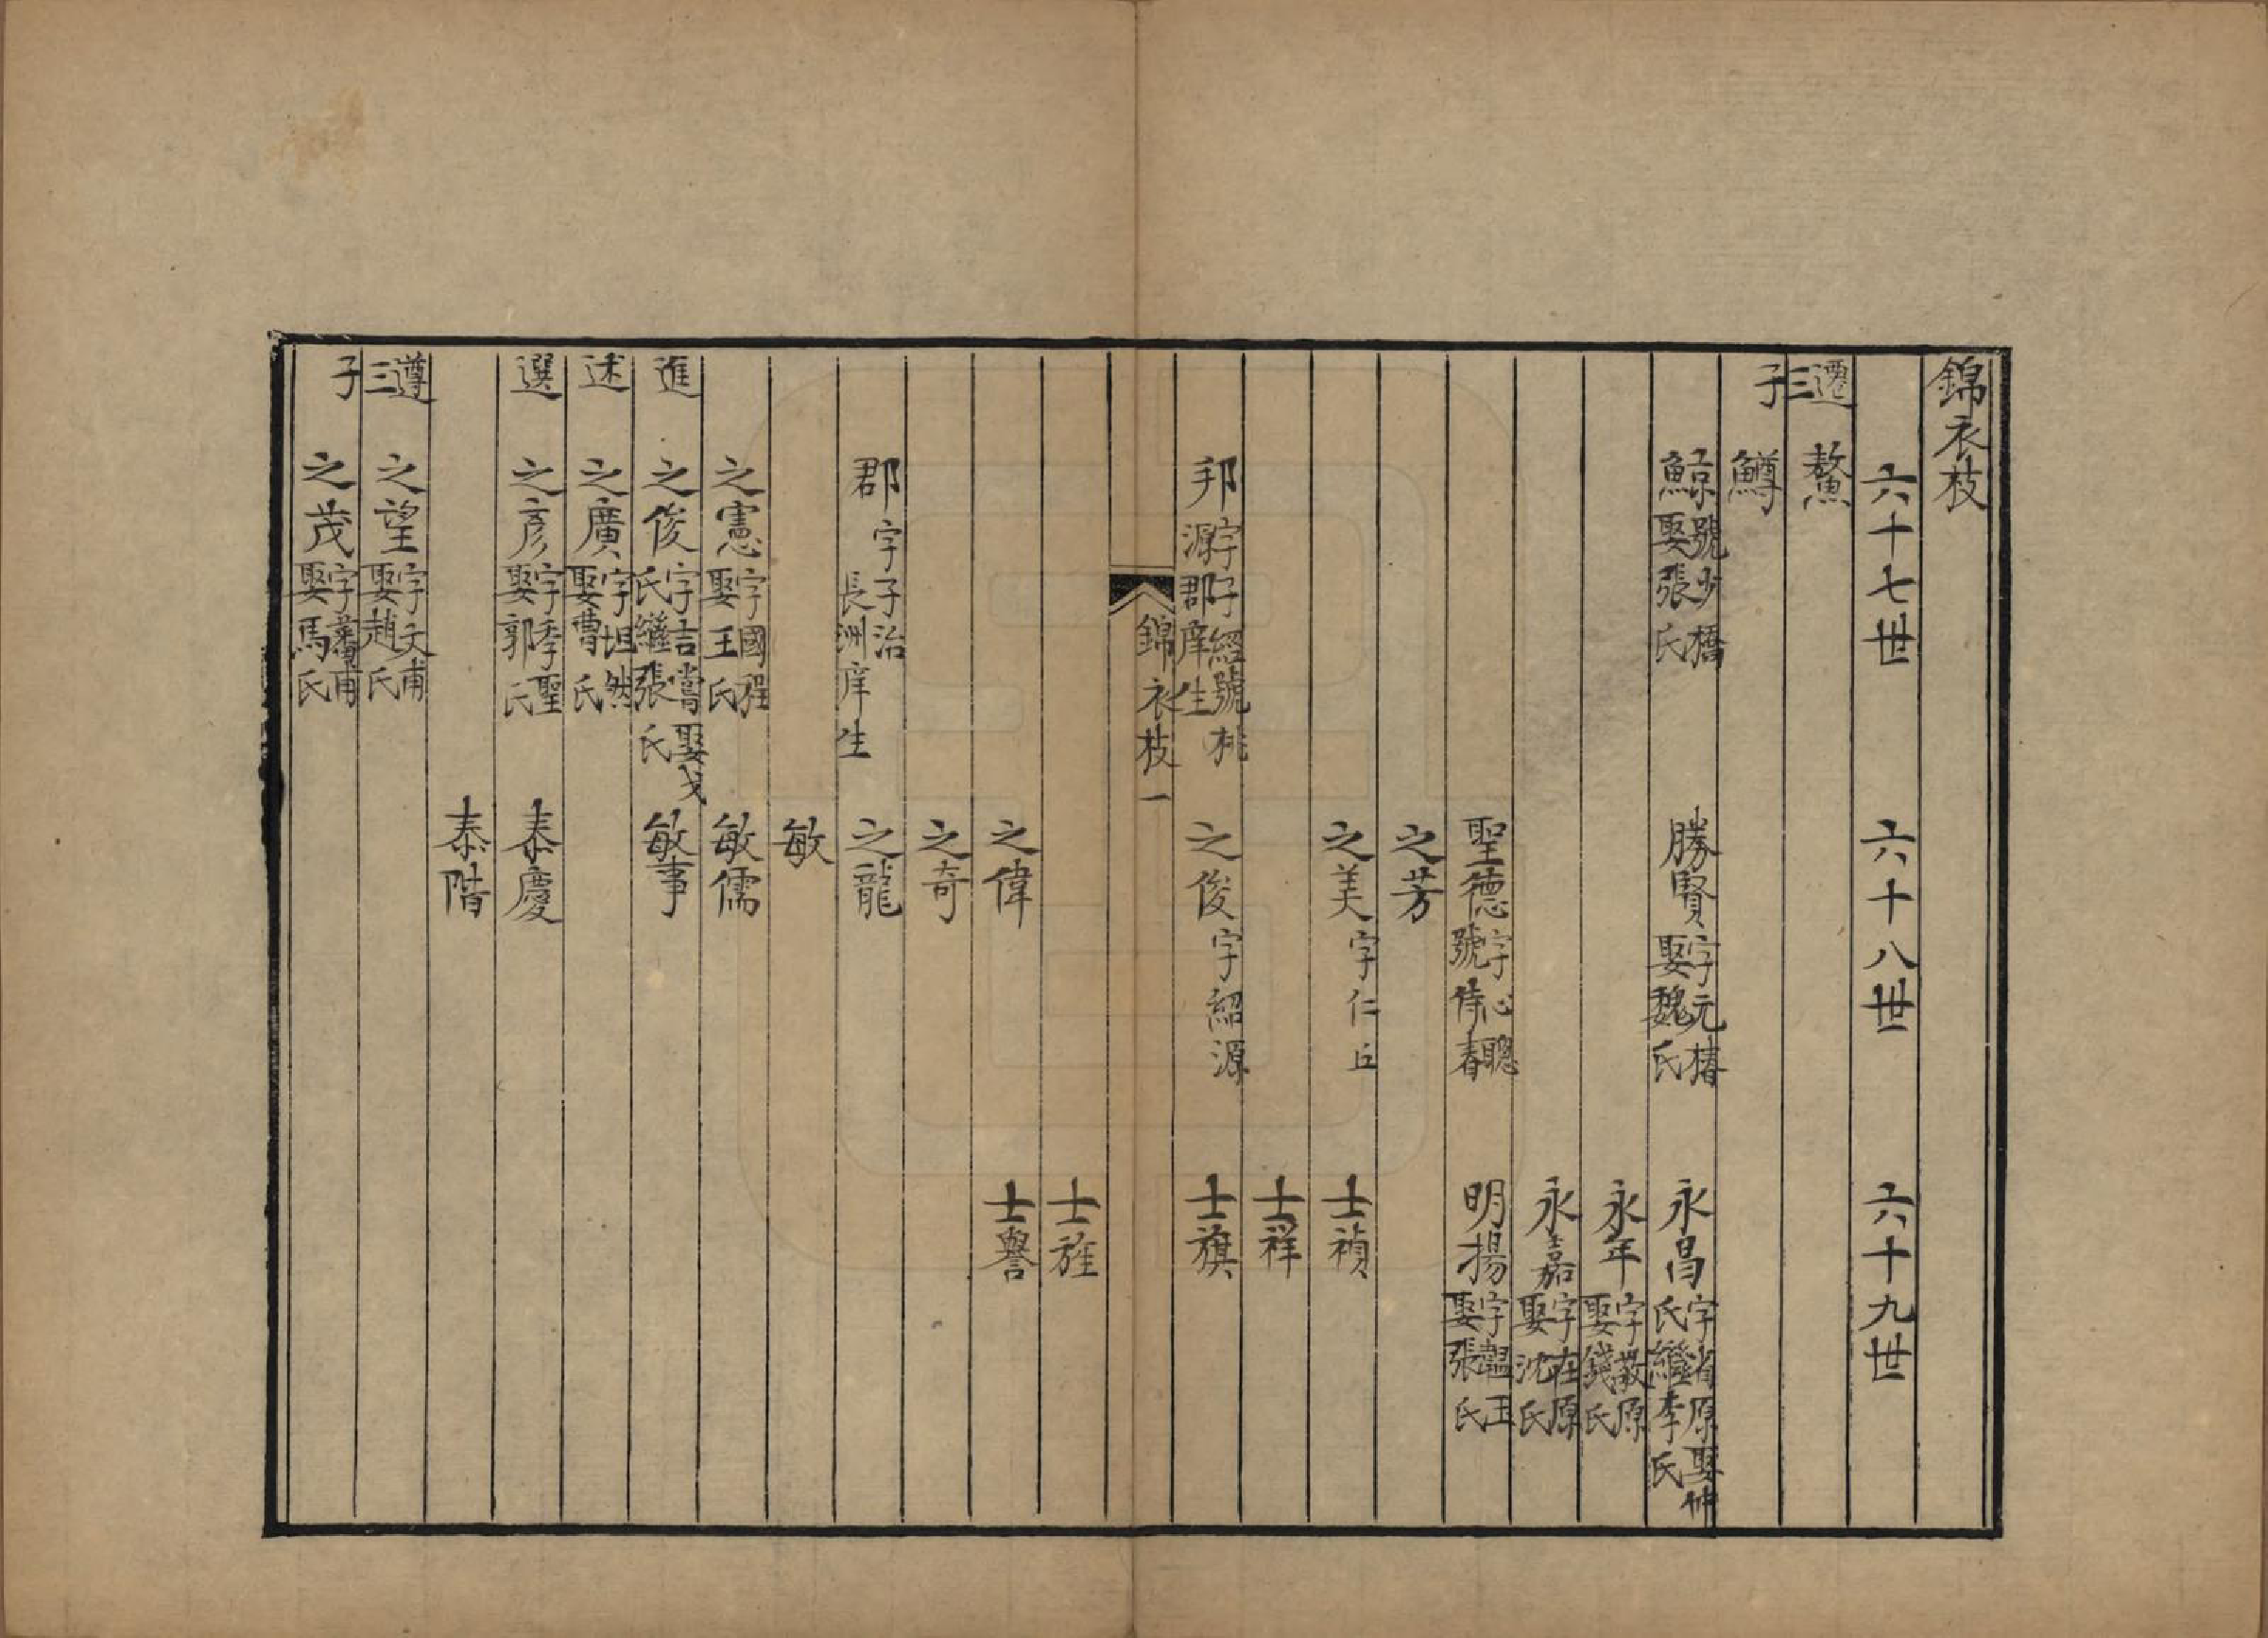 錦衣枝
六十七世　六十八世　六十九世
遷三子　鰲
鱒
鯨　號少橋娶張氏　勝賢　字元椿娶魏氏　永昌　字省原娶仲氏繼李氏
永年　字敬原娶錢氏
永嘉　字在原娶沈氏
聖德　字心聰號侍春　明揚　字韞玉娶張氏
之芳
之美　字仁丘　士禎
士祥
邦　字子經號桃源郡庠生　之俊　字紹源　士旗
錦衣枝　一
士旌
之偉　士譽
之奇
郡　字子治長洲庠生　之龍
敏
之憲　字國程娶王氏　敏儒
進　之俊　字吉嘗娶戈氏繼張氏　敏事
述　之廣　字坦然娶曹氏
選　之彥　字季聖娶郭氏　泰慶
泰階
遵三子　之望　字文甫娶趙氏
之茂　字蕃甫娶馬氏